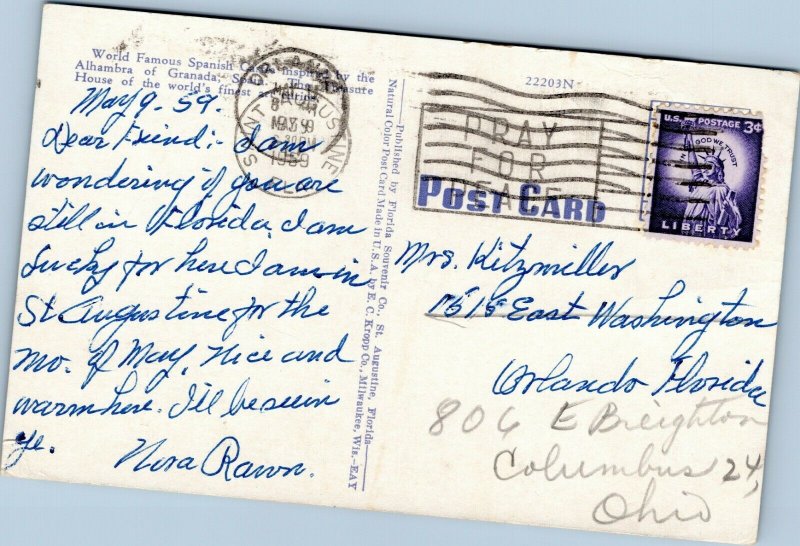 World Famous Spanish inspired by the
Alhambra of Granada, Spain. The Treasure
House of the world's finest
May 9-59.
Dear Friend:- I am
wondering if you are
still in Florida, I am
Lucky for here I am in
St Augustine for the
mo. of May, Nice and
warm here. I'll be seein
ye.
Nora Rawn.
SAINT AUGUSTINE
1959
ORLANDO
PRAY
FOR
PEACE
Published by Florida Souvenir Co., St. Augustine, Florida—
Natural Color Post Card Made in U.S.A. by E. C. Kropp Co., Milwaukee, Wis.—EAY
22203N
POST CARD
U.S. POSTAGE 3¢
IN GOD WE TRUST
LIBERTY
Mrs. Kitzmiller
1515 East Washington
Orlando Florida
806 E Breighton
Columbus 24,
Ohio